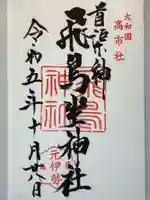 大和国
高市社
首渚宗神
飛鳥坐神社
元伊勢
令和五年十月廿八日